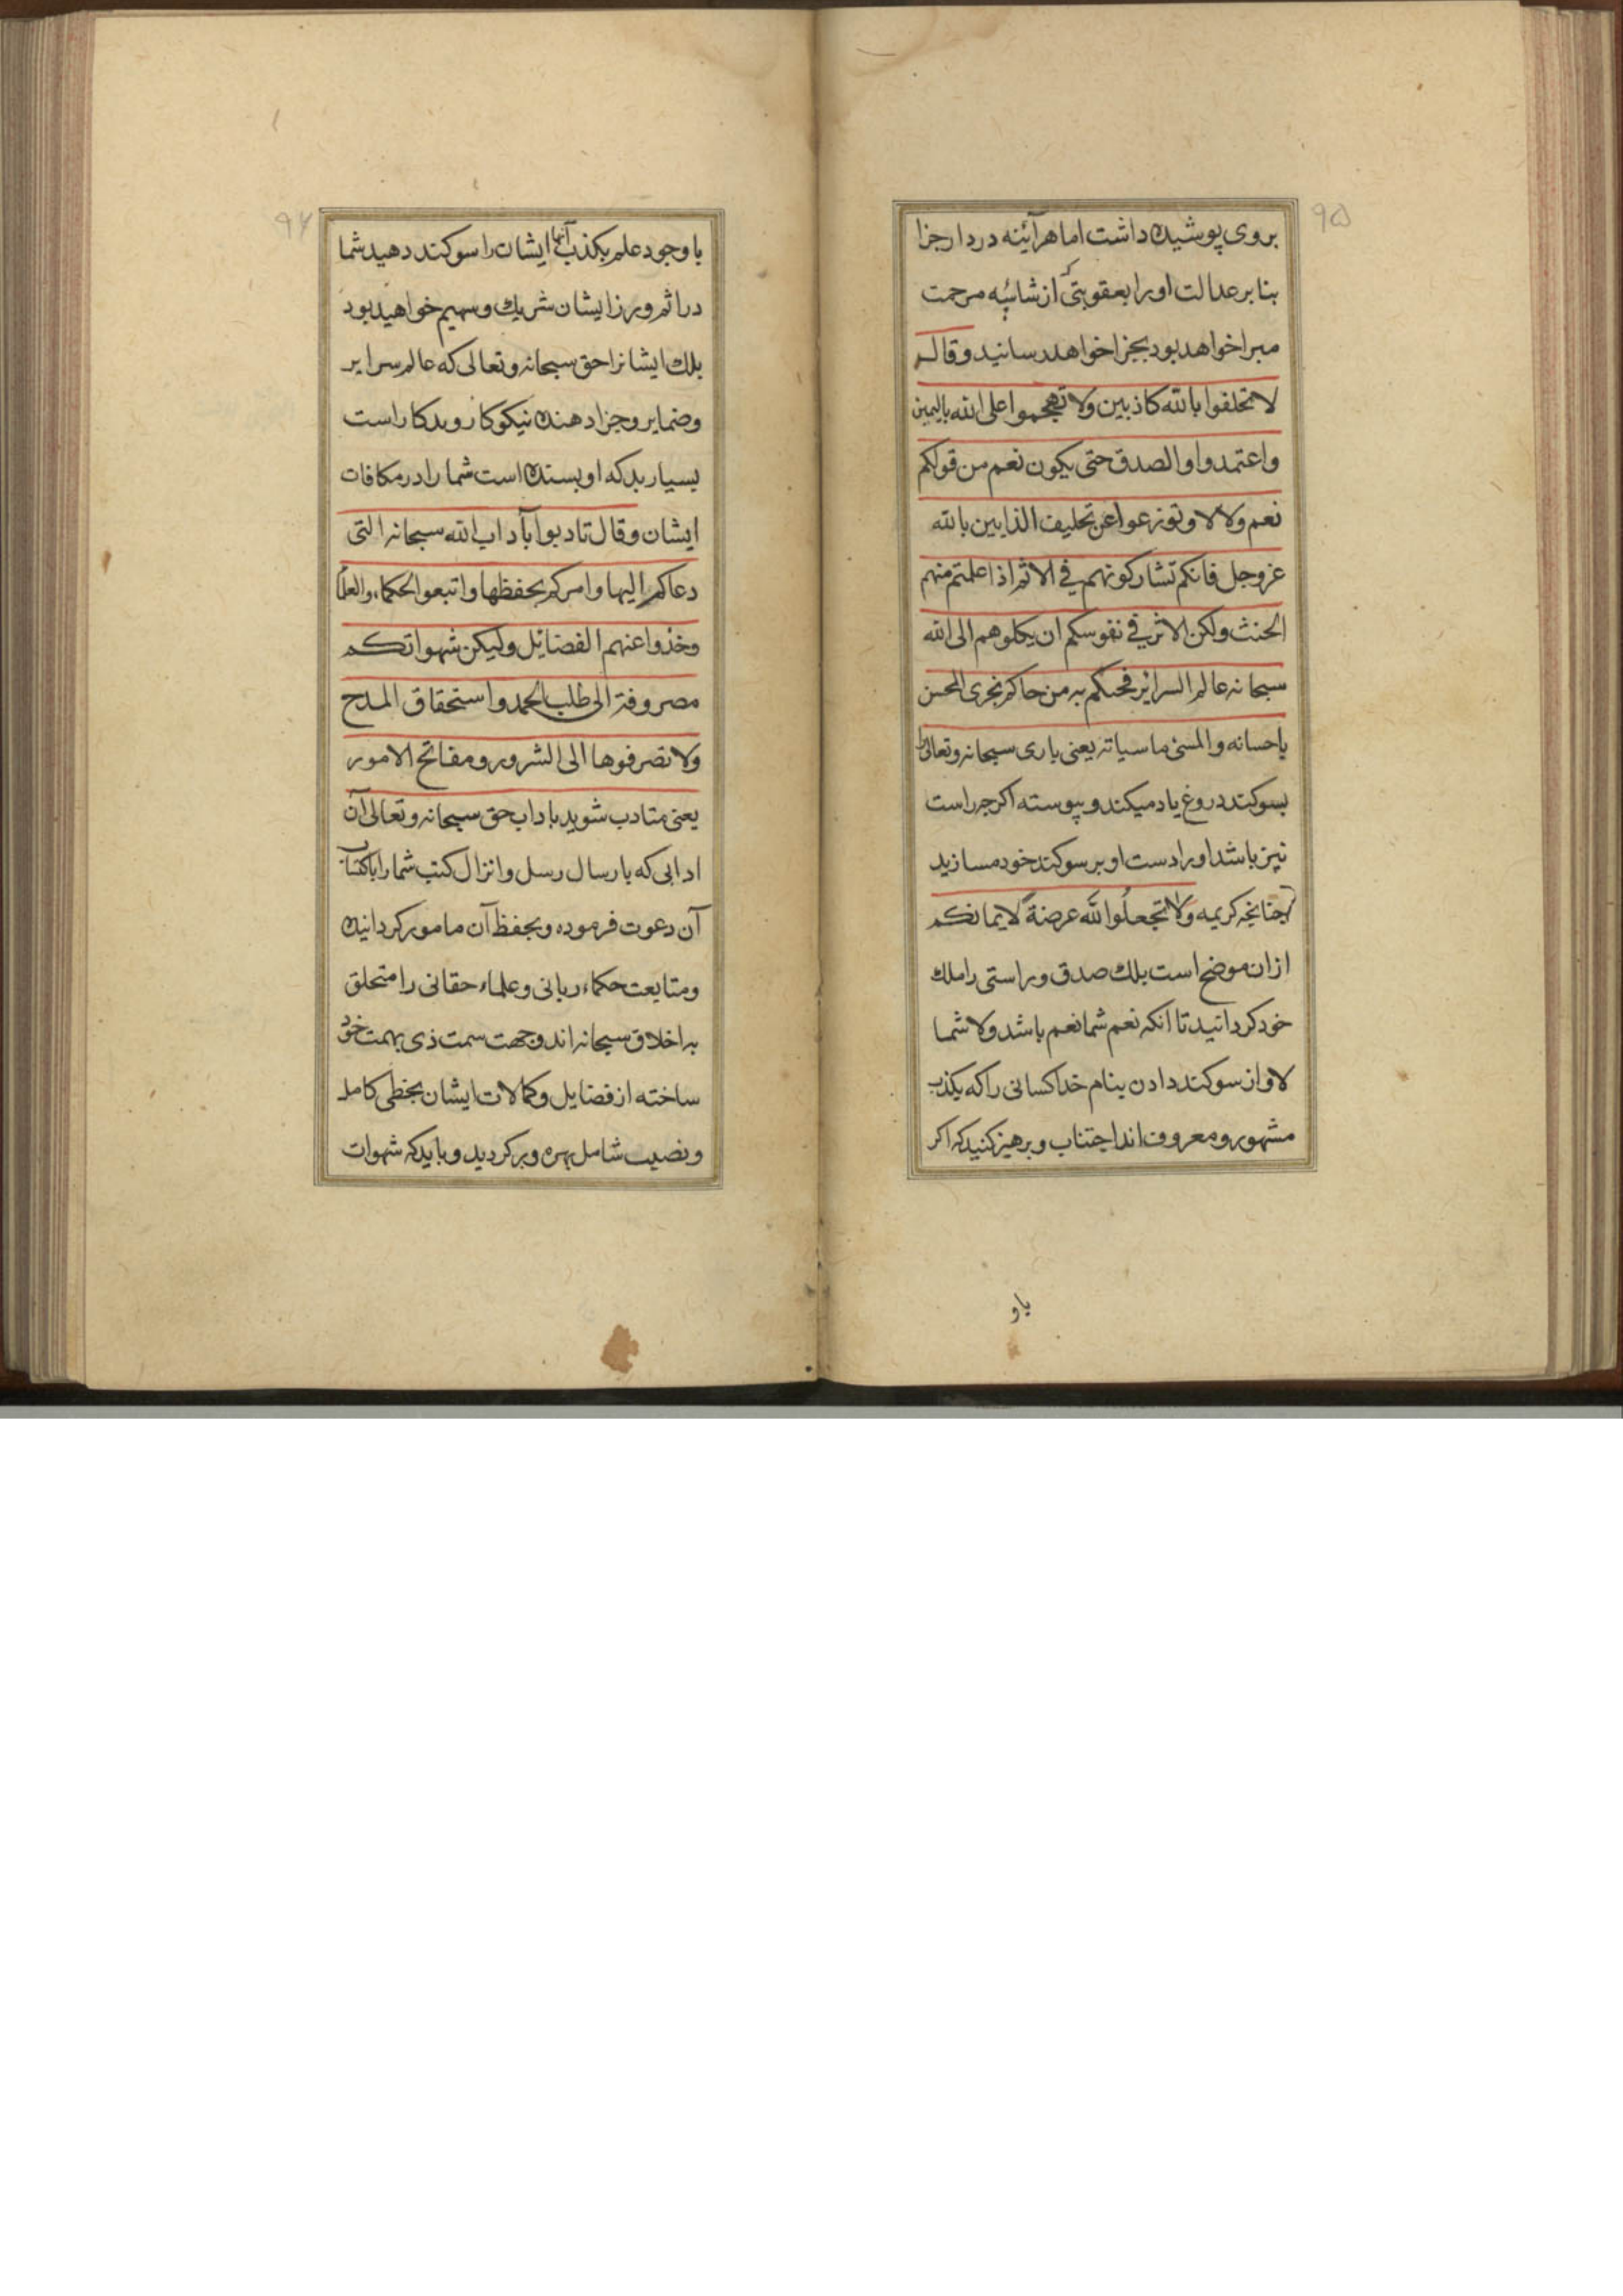 ۹۵
بروی پوشیده داشت اما هرآئینه در دار جزا
بنابر عدالت او را بعقوبتی که از شائبه مرحمت
مبرا خواهد بود بجزا خواهد رسانید وقال
لا تحلفوا بالله کاذبین ولا تهجموا علی الله بالیمین
واعتمدوا والصدق حتی یکون نعم من قولکم
نعم ولا لا وتوزعوا عن تحلیف الذابین بالله
عزوجل فانکم تشارکونهم فی الاثم اذا علمتم منهم
الحنث ولکن الاثر فی نفوسکم ان یکلوهم الی الله
سبحانه عالم السرائر فحبکم به من حاکم نجری المحسن
باحسانه والمسئ ماسیاته یعنی باری سبحانه وتعالی را
بسوکند دروغ یاد میکند وپیوسته اکرچه راست
نیز باشد او را دست او بر سوکند خود مسازید
چنانچه کریمه ولا تجعلوا الله عرضة لایمانکم
ازان موضح است بلك صدق وراستی را ملك
خود کردانید تا انکه نعم شما نعم باشد ولا شما
لا واز سوکند دادن بنام خدا کسانی را که بکذب
مشهور ومعروف اند اجتناب وبرهیز کنید که اکر
باو
۹۶
با وجود علم بکذب آنها ایشان را سوکند دهید شما
در اثم ورز ایشان شریك وسهیم خواهید بود
بلك ایشانرا حق سبحانه وتعالی که عالم سرایر
وضمایر وجزا دهنده نیکوکار وبدکار است
بسیار بد که او بسنده است شما را در مکافات
ایشان وقال تادبوا بآداب الله سبحانه التی
دعاکم الیها وامرکم بحفظها واتبعوا الحکماء والعلما
وخذوا عنهم الفضائل ولیکن شهواتکم
مصروفة الی طلب الحمد واستحقاق المدح
ولا تصرفوها الی الشرور ومفاتح الامور
یعنی متادب شوید باداب حق سبحانه وتعالی آن
ادابی که بارسال رسل وانزال کتب شما را باکتساب
آن دعوت فرموده وبحفظ آن مامور کردانیده
ومتابعت حکماء ربانی وعلماء حقانی را متخلق
به اخلاق سبحانه اند وجهت سمت ذی بهمت خود
ساخته از فضایل وکمالات ایشان بخطی کامل
ونصیب شامل بهره ور کردید وباید که شهوات